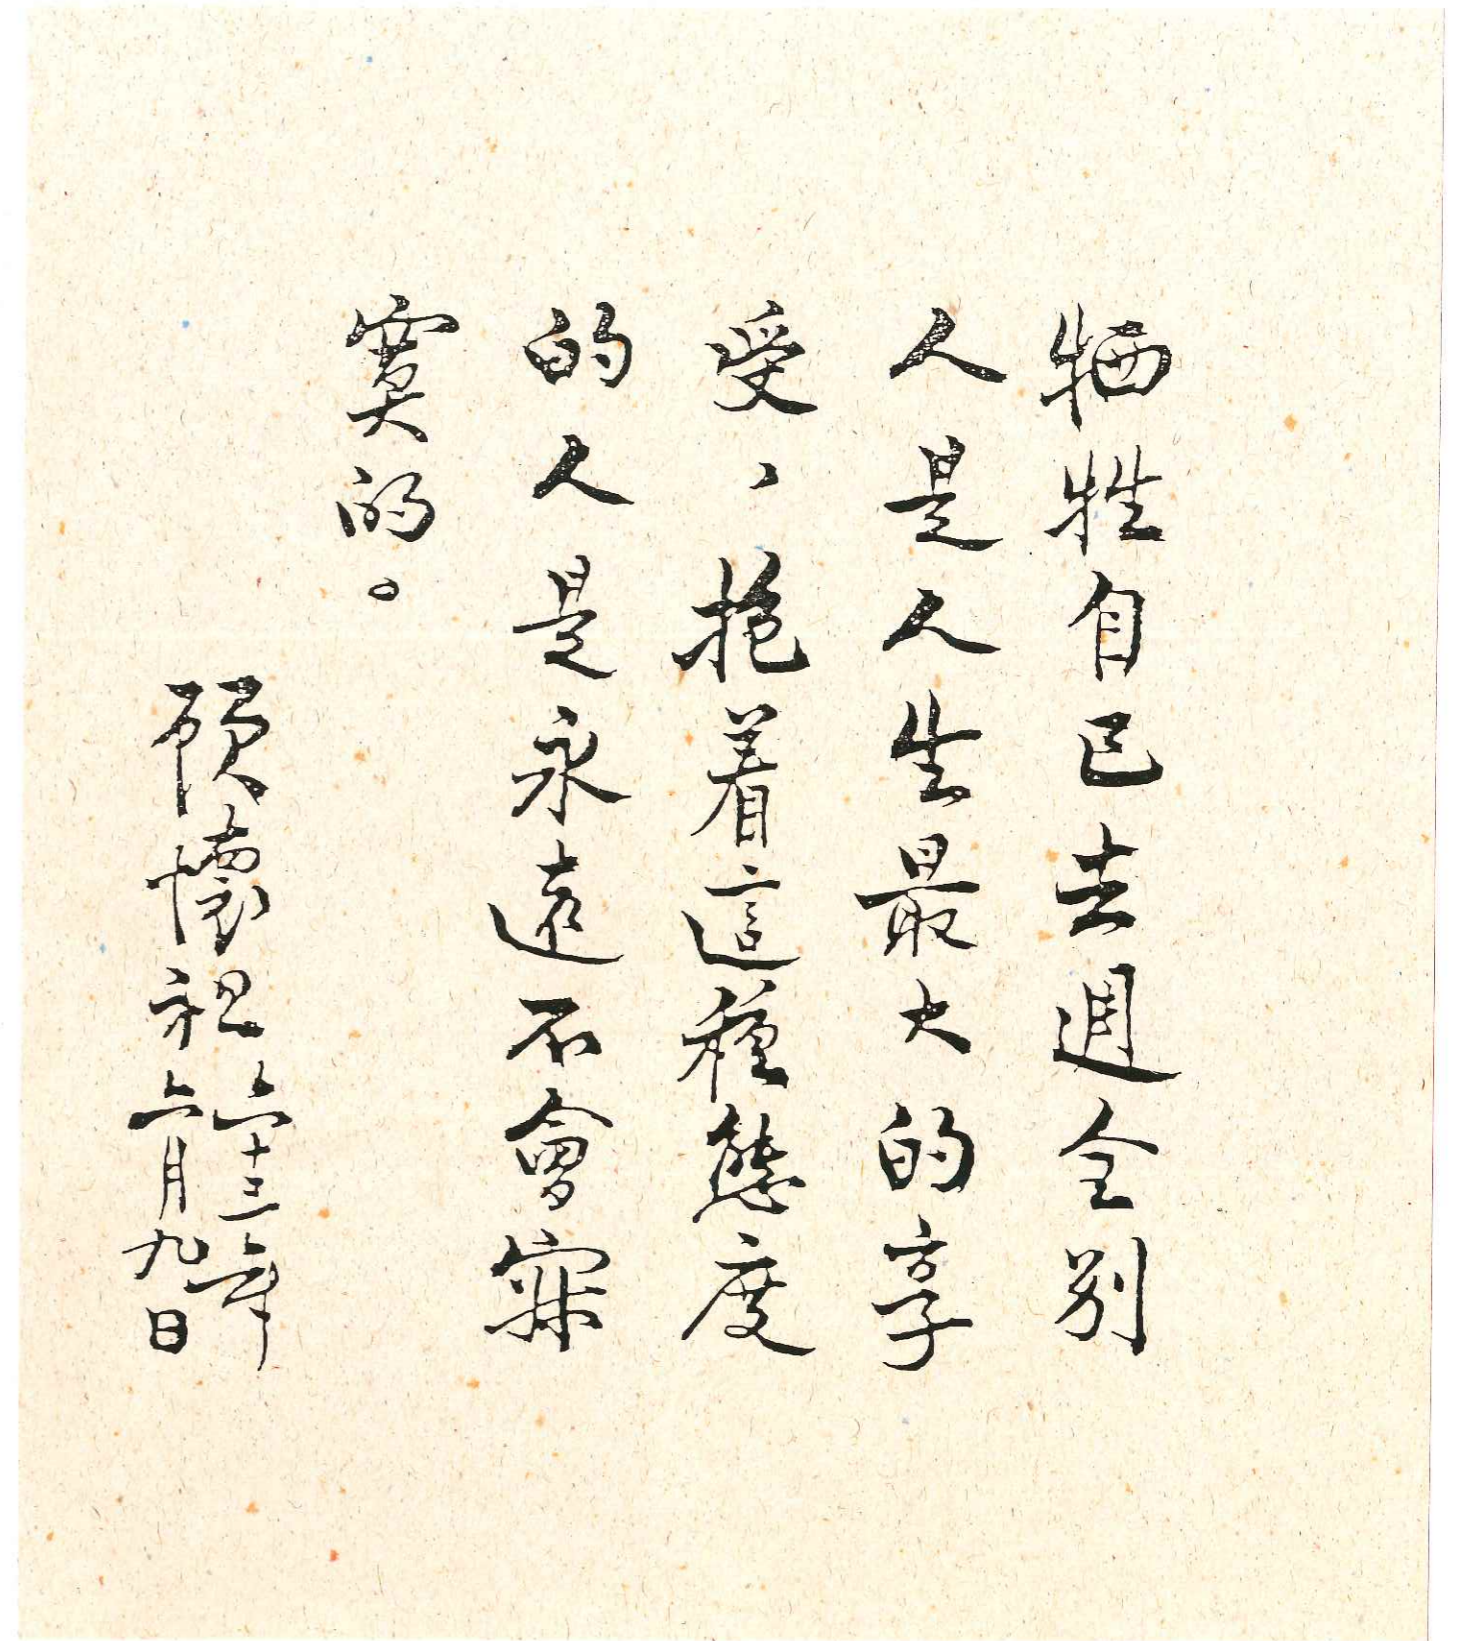 牺牲自己去週全别
人是人生最大的享
受、抱着這種態度
的人是永遠不會寂
寞的。
顾懷祖
六十三年
六月九日